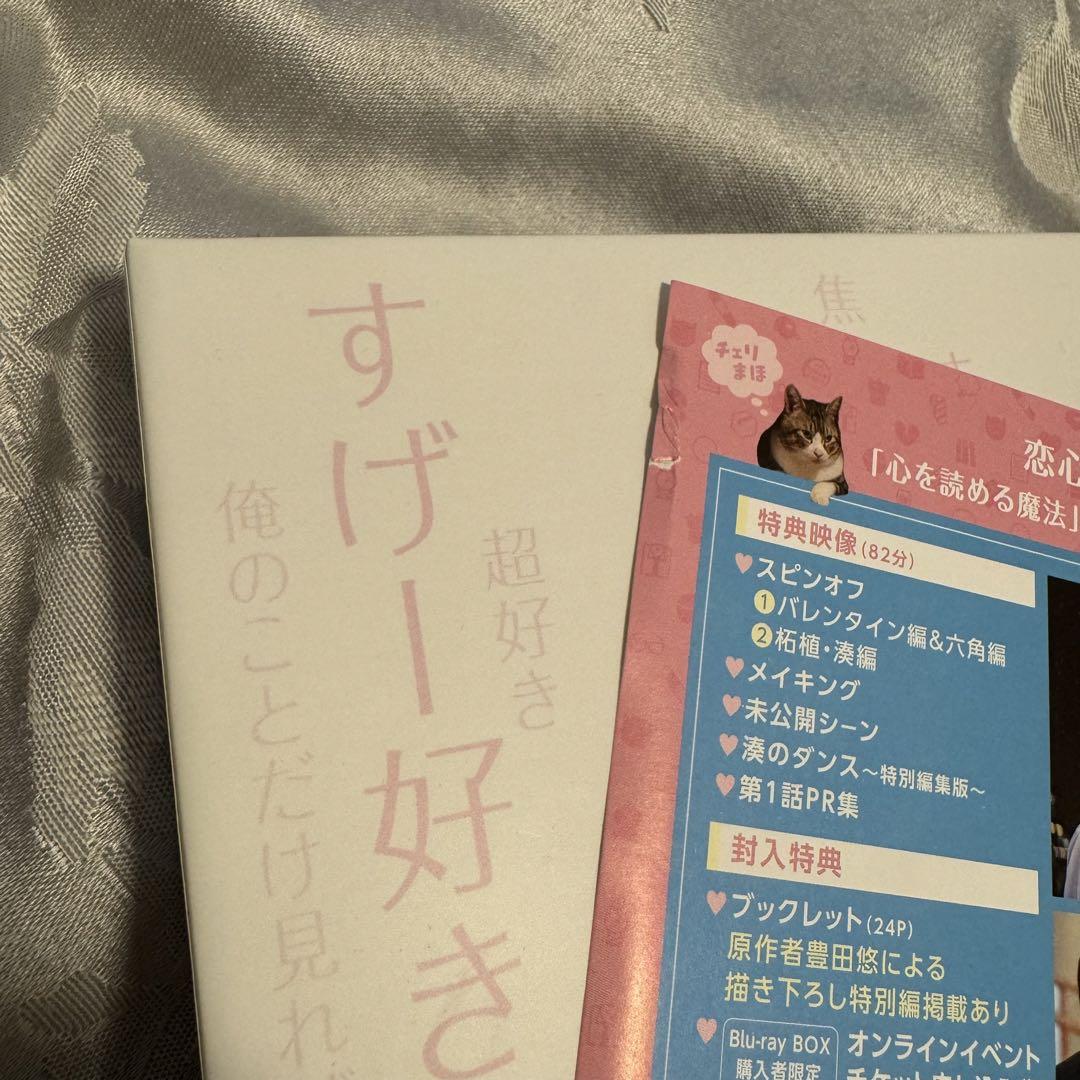 すげー好き
超好き
俺のことだけ見れ
焦
チェリ
まほ
恋心
「心を読める魔法」
特典映像(82分)
スピンオフ
①バレンタイン編&六角編
②柘植・湊編
メイキング
未公開シーン
湊のダンス～特別編集版～
第1話PR集
封入特典
ブックレット(24P)
原作者豊田悠による
描き下ろし特別編掲載あり
Blu-ray BOX
購入者限定
オンラインイベント